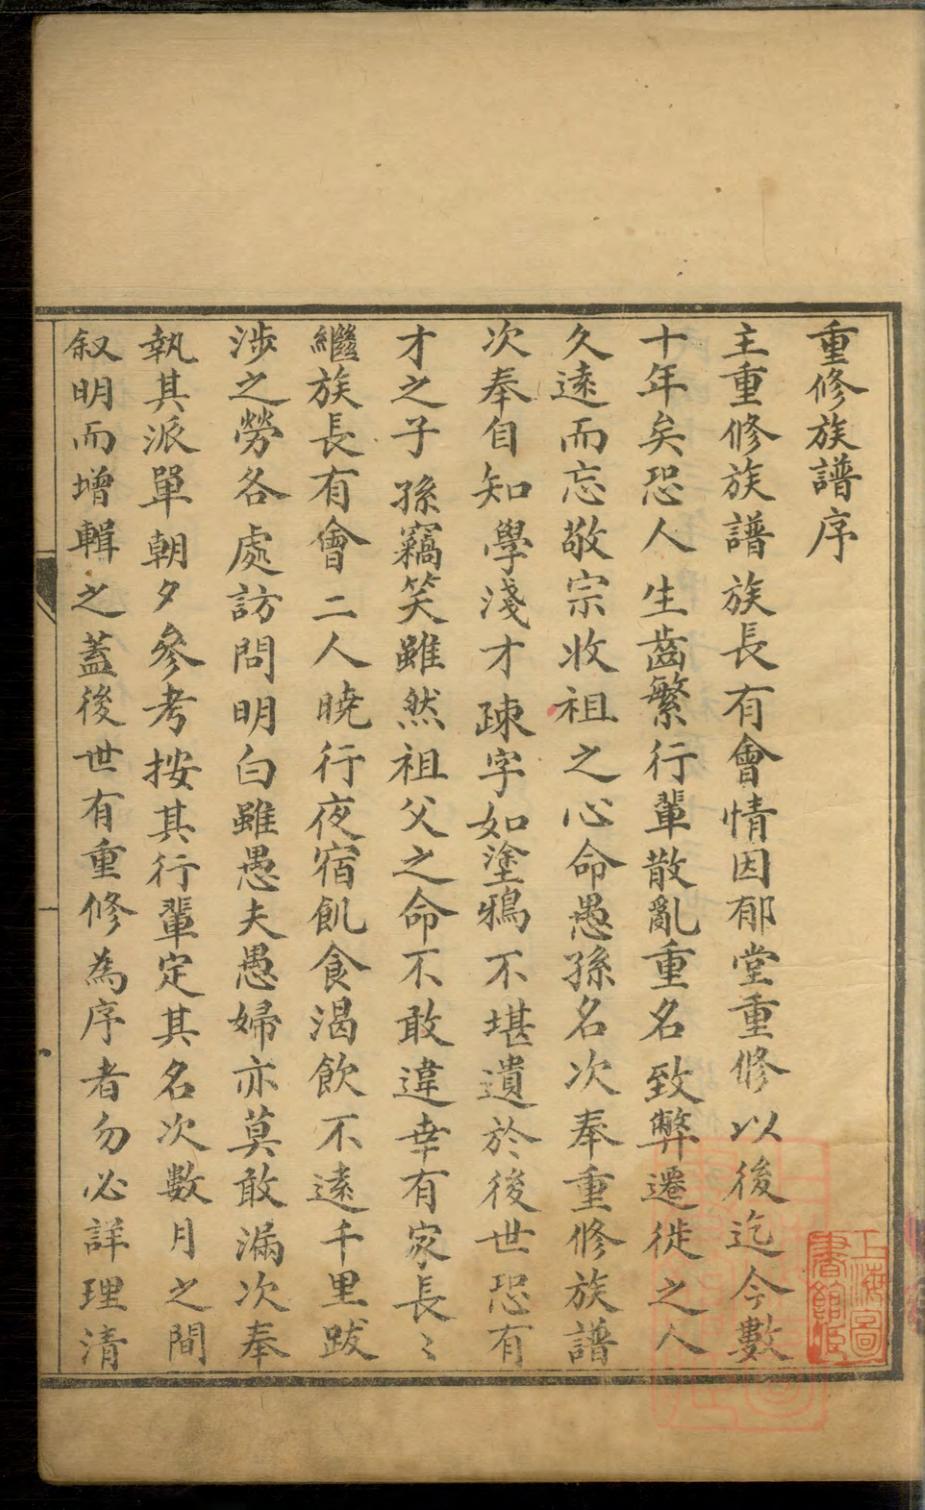 重修族譜序
主重修族譜族長有會情因郁堂重修以後迄今數
十年矣恐人生齒繁行輩散亂重名致弊遷徙之人
久遠而忘敬宗收祖之心命愚孫名次奉重修族譜
次奉自知學淺才疎字如塗鴉不堪遺於後世恐有
才之子孫竊笑雖然祖父之命不敢違幸有家長〻
繼族長有會二人曉行夜宿飢食渴飲不遠千里跋
涉之勞各處訪問明白雖愚夫愚婦亦莫敢漏次奉
執其派單朝夕參考按其行輩定其名次數月之間
叙明而增輯之蓋後世有重修為序者勿必詳理清
上海圖
書館藏